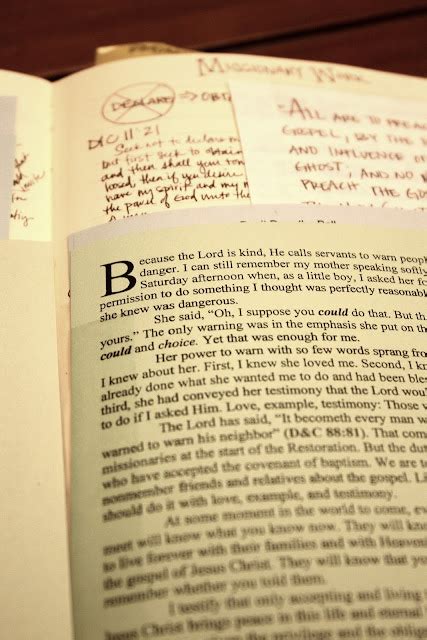 MISSIONARY WORK
DECLARE ⇒ OBTA
D&C 11:21
Seek not to declare m
but first seek to obtain
and then shall you ton
losed, then if you desire
have my spirit and my w
the power of God unto the
ALL ARE TO PREAC
GOSPEL, BY THE P
AND INFLUENCE OF
GHOST; AND NO
PREACH THE GOS
Because the Lord is kind, He calls servants to warn peopl
danger. I can still remember my mother speaking softly
Saturday afternoon when, as a little boy, I asked her fo
permission to do something I thought was perfectly reasonabl
she knew was dangerous.
She said, “Oh, I suppose you could do that. But th
yours.” The only warning was in the emphasis she put on th
could and choice. Yet that was enough for me.
Her power to warn with so few words sprang fro
I knew about her. First, I knew she loved me. Second, I kn
already done what she wanted me to do and had been bles
third, she had conveyed her testimony that the Lord wou
to do if I asked Him. Love, example, testimony: Those w
The Lord has said, “It becometh every man w
warned to warn his neighbor” (D&C 88:81). That com
missionaries at the start of the Restoration. But the du
who have accepted the covenant of baptism. We are to
nonmember friends and relatives about the gospel. Li
should do it with love, example, and testimony.
At some moment in the world to come, eve
meet will know what you know now. They will kno
to live forever with their families and with Heaven
the gospel of Jesus Christ. They will know that yo
remember whether you told them.
I testify that only accepting and living t
Jesus Christ brings peace in this life and eternal
the privileges and the obligat